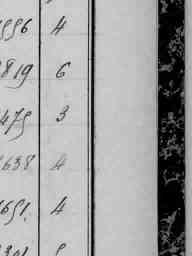 996 4
819 6
479 3
638 4
691. 4